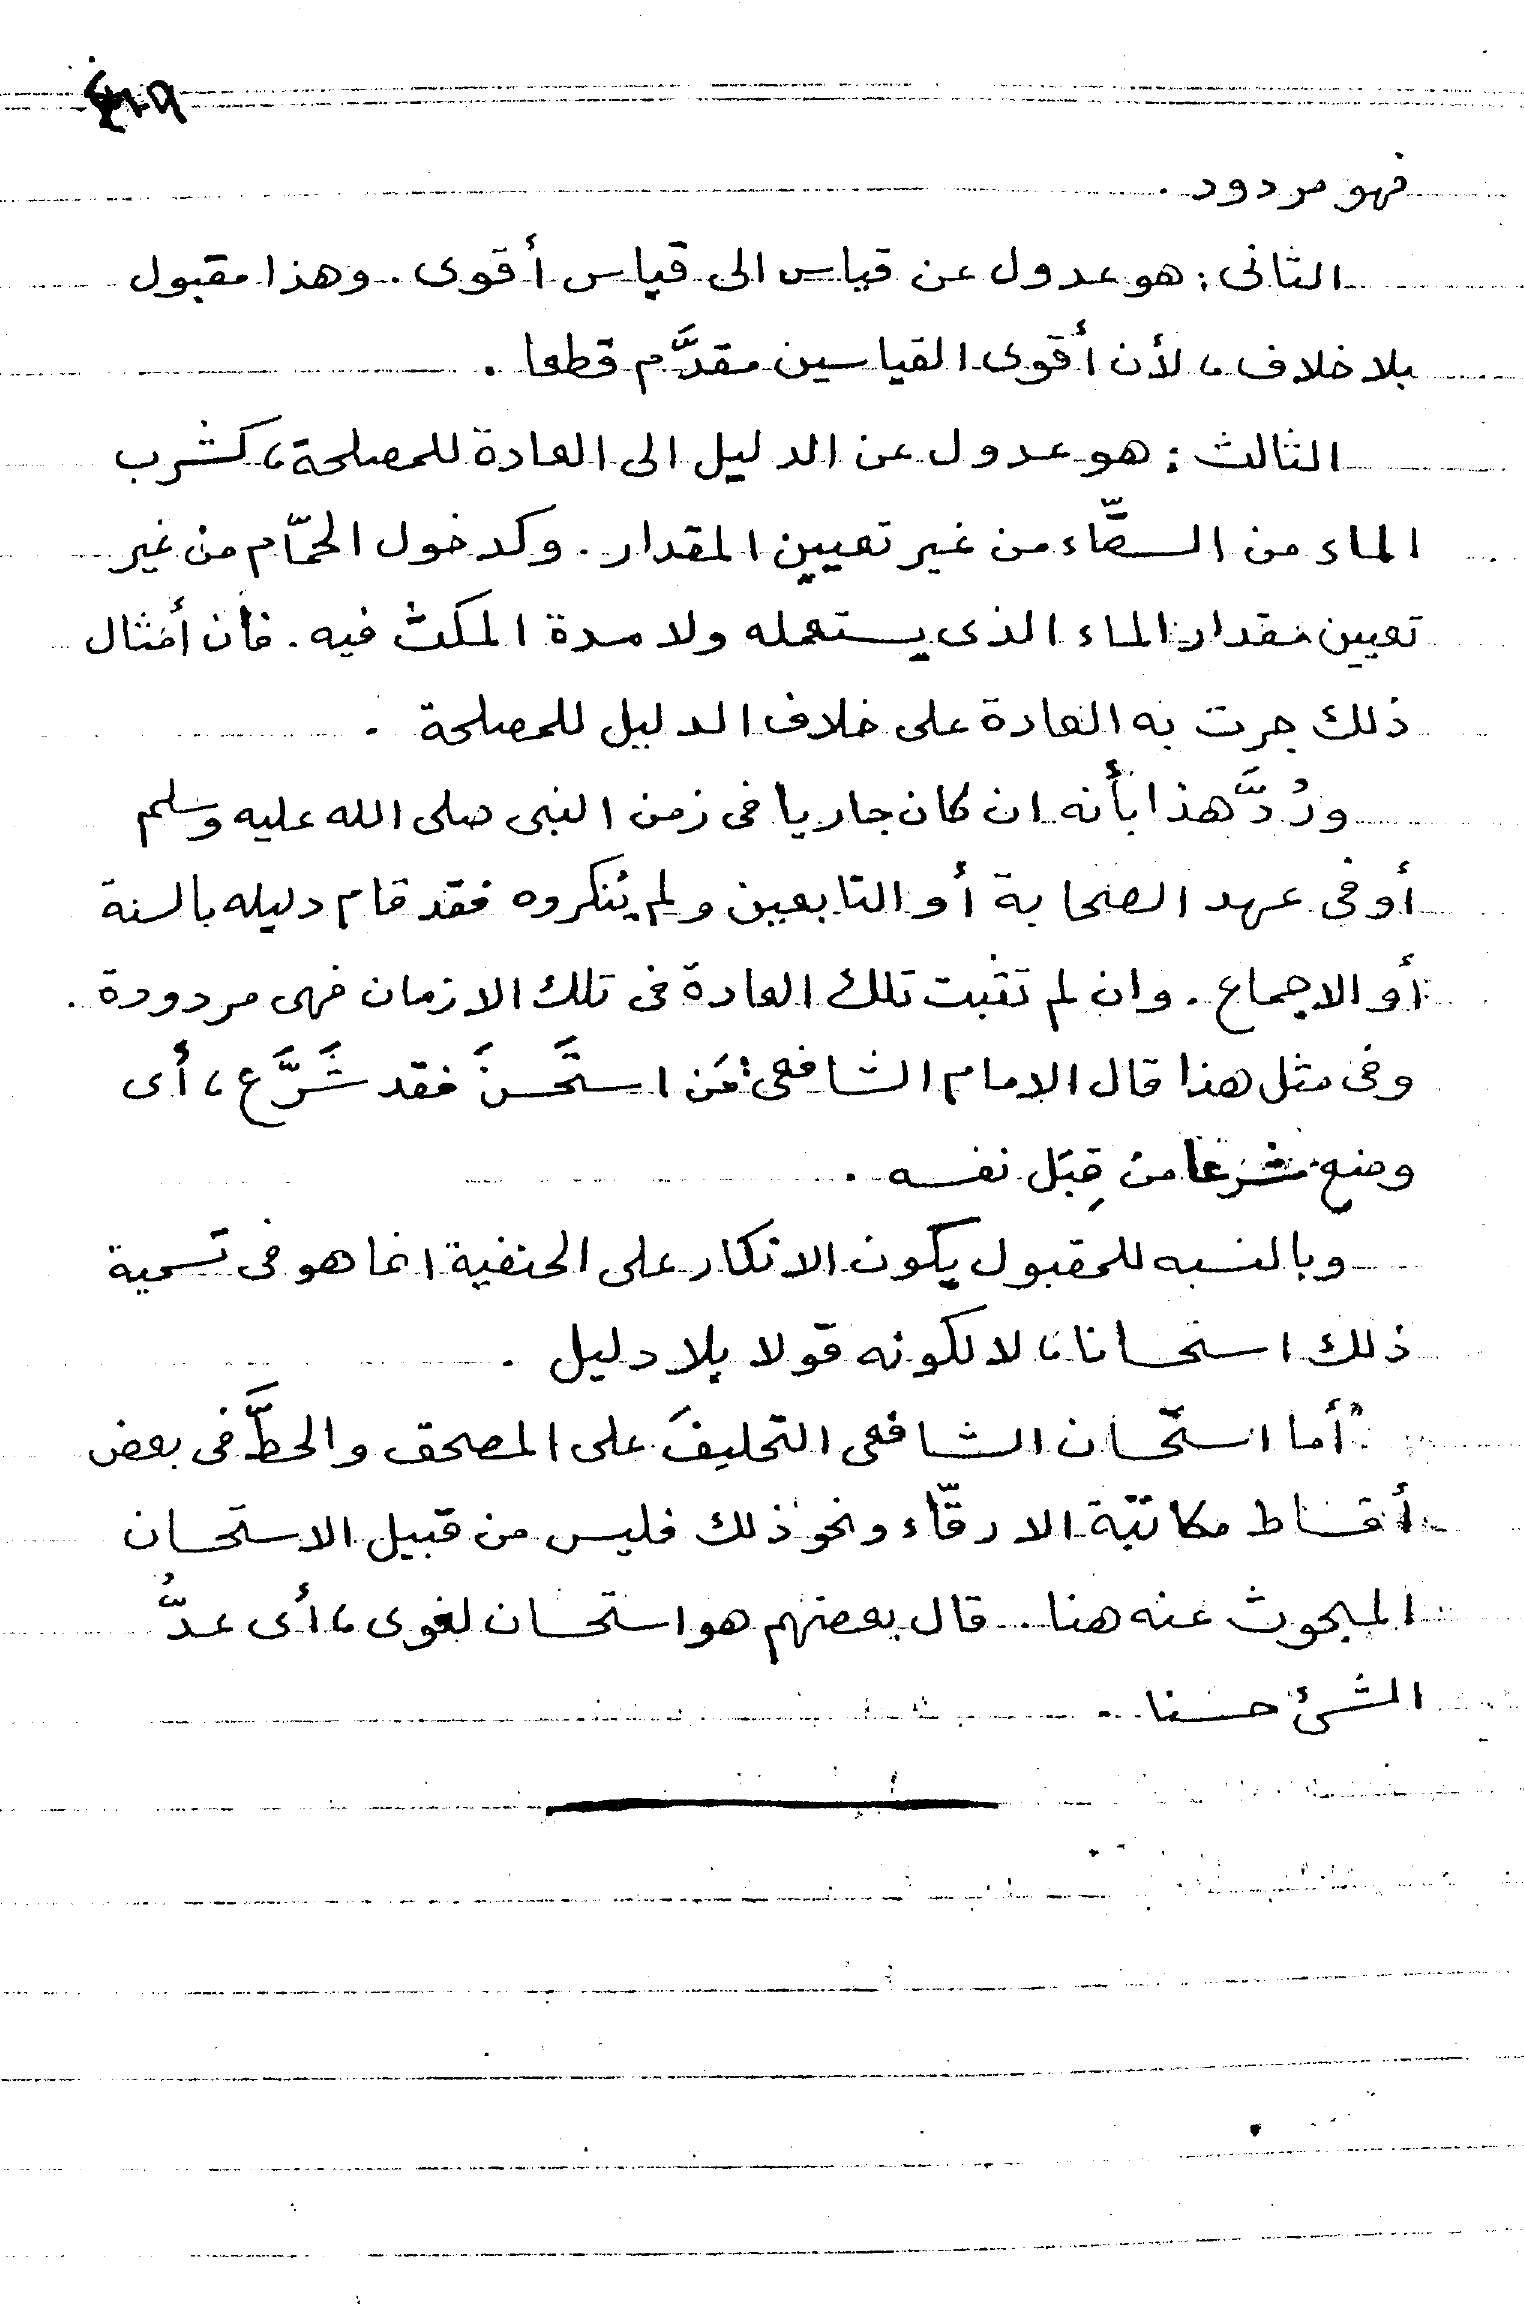 فهو مردود .
الثانى : هو عدول عن قياس الى قياس أقوى . وهذا مقبول
بلا خلاف ، لأن أقوى القياسين مقدَّم قطعا .
الثالث : هو عدول عن الدليل الى العادة للمصلحة ، كشرب
الماء من السقّاء من غير تعيين المقدار . وكدخول الحمّام من غير
تعيين مقدار الماء الذى يستعمله ولا مدة المكث فيه . فأن أمثال
ذلك جرت به العادة على خلاف الدليل للمصلحة .
ورُدَّ هذا بأنه ان كان جاريا فى زمن النبى صلى الله عليه وسلم
أو فى عهد الصحابة أو التابعين ولم يُنكروه فقد قام دليله بالسنة
أو الاجماع . وان لم تثبت تلك العادة فى تلك الازمان فهى مردودة .
وفى مثل هذا قال الامام الشافعى : مَن استَحسنَ فقد شَرَّع ، أى
وضع شرعا من قِبَل نفسه .
وبالنسبه للمقبول يكون الانكار على الحنفية انما هو فى تسمية
ذلك استحسانا ، لا لكونه قولا بلا دليل .
أما استحسان الشافعى التحليفَ على المصحف والحطَّ فى بعض
أقساط مكاتبة الارقّاء ونحو ذلك فليس من قبيل الاستحسان
المبحوث عنه هنا . قال بعضهم هو استحسان لغوى ، أى عدُّ
الشئ حسنا .